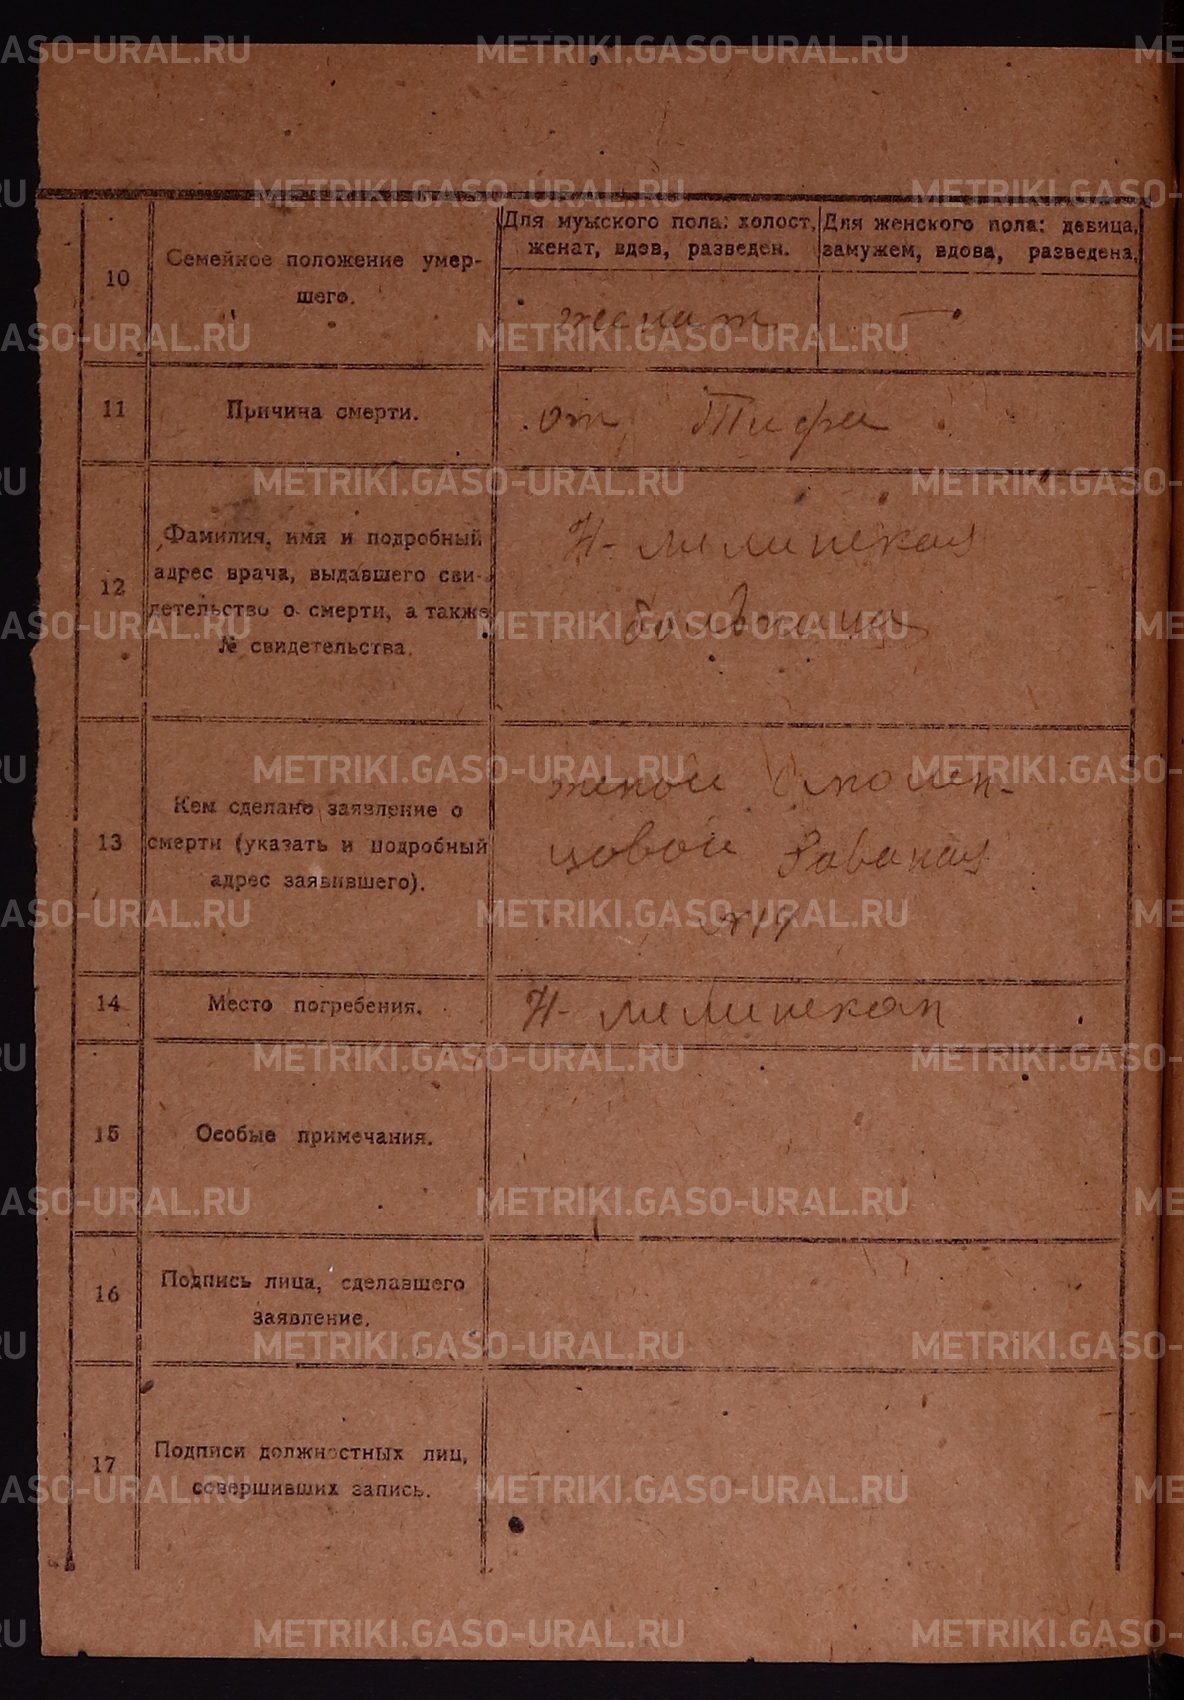 Для мужского пола: холост, женат, вдов, разведен.
Для женского пола: девица, замужем, вдова, разведена.
10
Семейное положение умер-
шего.
женат
—
11
Причина смерти.
от Тифа
12
Фамилия, имя и подробный
адрес врача, выдавшего сви-
детельство о смерти, а также
№ свидетельства.
Н-
больница
13
Кем сделано заявление о
смерти (указать и подробный
адрес заявившего).
женой Смолен-
цовой
14
Место погребения.
Н-
15
Особые примечания.
16
Подпись лица, сделавшего
заявление.
17
Подписи должностных лиц,
совершивших запись.
METRIKI.GASO-URAL.RU